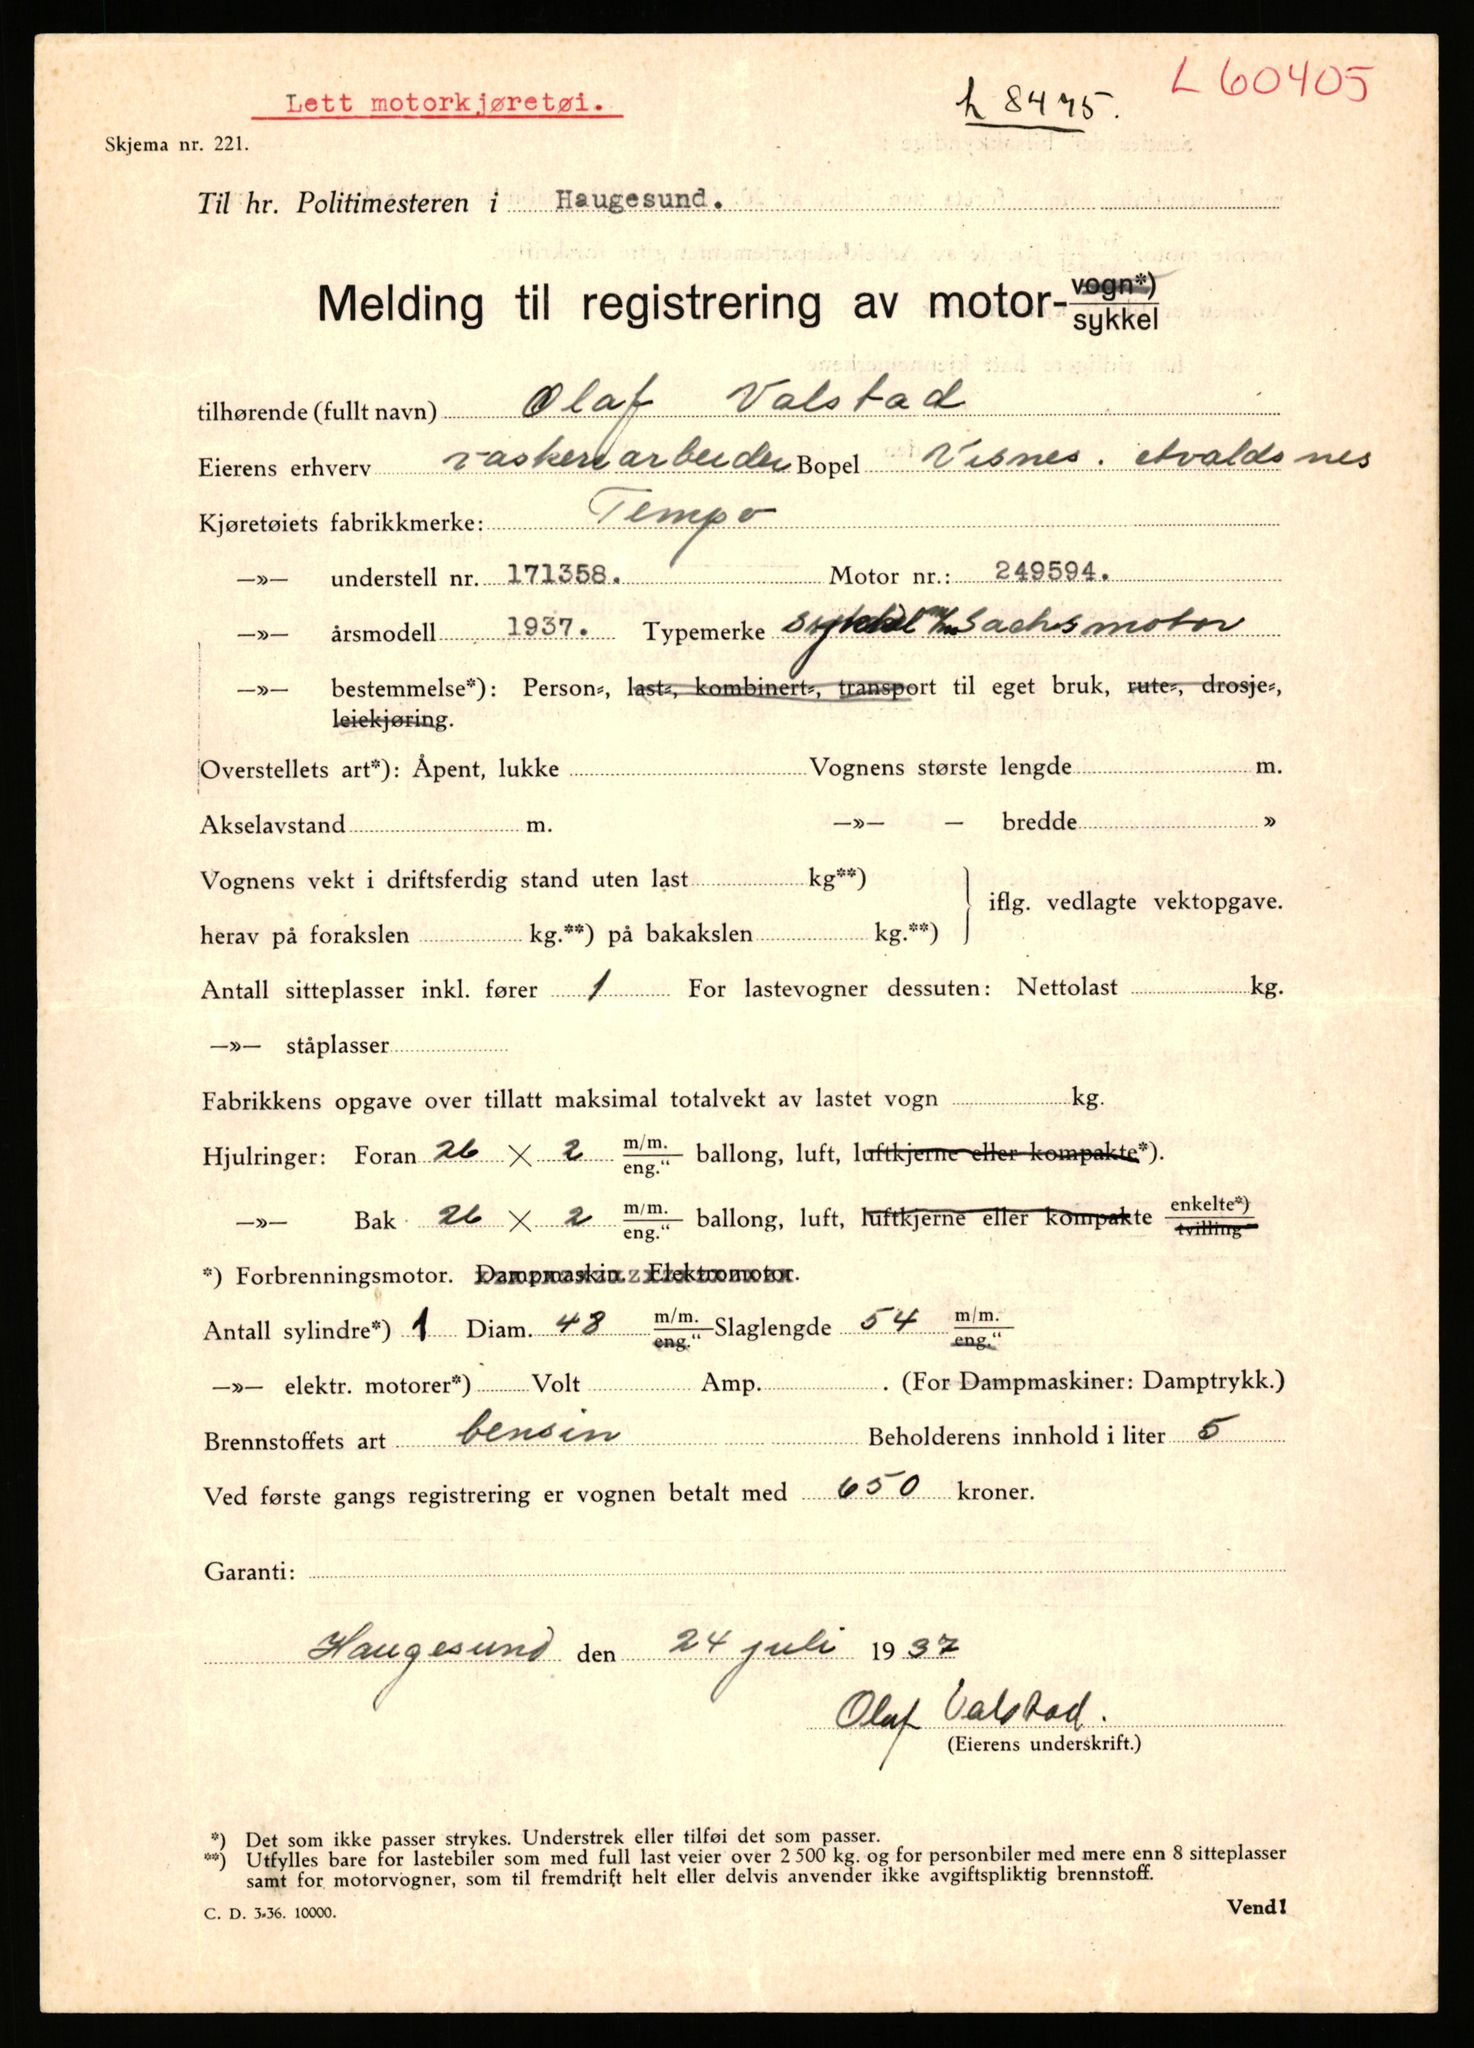 L 60405
L 8475.
Lett motorkjøretøi.
Skjema nr. 221.
Til hr. Politimesteren i Haugesund.
Melding til registrering av motor-vogn*)
sykkel
tilhørende (fullt navn) Olaf Valstad
Eierens erhverv vaskeriarbeider Bopel Visnes. Avaldsnes
Kjøretøiets fabrikkmerke: Tempo
—»— understell nr. 171358. Motor nr.: 249594.
—»— årsmodell 1937. Typemerke sykkel m/ Sachsmotor
—»— bestemmelse*): Person-, last-, kombinert-, transport til eget bruk, rute-, drosje-,
leiekjøring.
Overstellets art*): Åpent, lukke Vognens største lengde m.
Akselavstand m. —»— — bredde »
Vognens vekt i driftsferdig stand uten last kg**)
iflg. vedlagte vektopgave.
herav på forakslen kg.**) på bakakslen kg.**)
Antall sitteplasser inkl. fører 1 For lastevogner dessuten: Nettolast kg.
—»— ståplasser
Fabrikkens opgave over tillatt maksimal totalvekt av lastet vogn kg.
Hjulringer: Foran 26 × 2 m/m. eng.“ ballong, luft, luftkjerne eller kompakte*).
—»— Bak 26 × 2 m/m. eng.“ ballong, luft, luftkjerne eller kompakte enkelte*) tvilling
*) Forbrenningsmotor. Dampmaskin. Elektromotor.
Antall sylindre*) 1 Diam. 48 m/m. eng.“ Slaglengde 54 m/m. eng.“
—»— elektr. motorer*) Volt Amp. . (For Dampmaskiner: Damptrykk.)
Brennstoffets art bensin Beholderens innhold i liter 5
Ved første gangs registrering er vognen betalt med 650 kroner.
Garanti:
Haugesund den 24 juli 1937
Olaf Valstad.
(Eierens underskrift.)
*) Det som ikke passer strykes. Understrek eller tilføi det som passer.
**) Utfylles bare for lastebiler som med full last veier over 2 500 kg. og for personbiler med mere enn 8 sitteplasser
samt for motorvogner, som til fremdrift helt eller delvis anvender ikke avgiftspliktig brennstoff.
C. D. 3-36. 10000.
Vend!